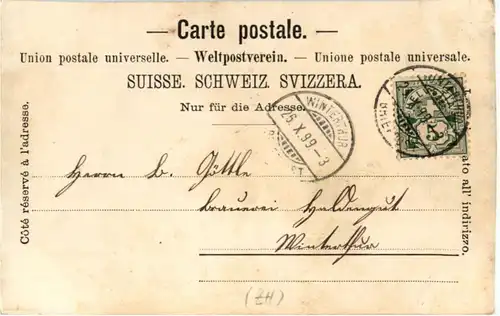 — Carte postale. —
Union postale universelle. — Weltpostverein. — Unione postale universale.
SUISSE. SCHWEIZ. SVIZZERA.
Nur für die Adresse.
Côté réservé à l'adresse.
WINTERTHUR
26.X.99–3
Herrn b. Göttle
Brauerei Haldengut
Winterthur
ato all' indirizzo.
(ZH)